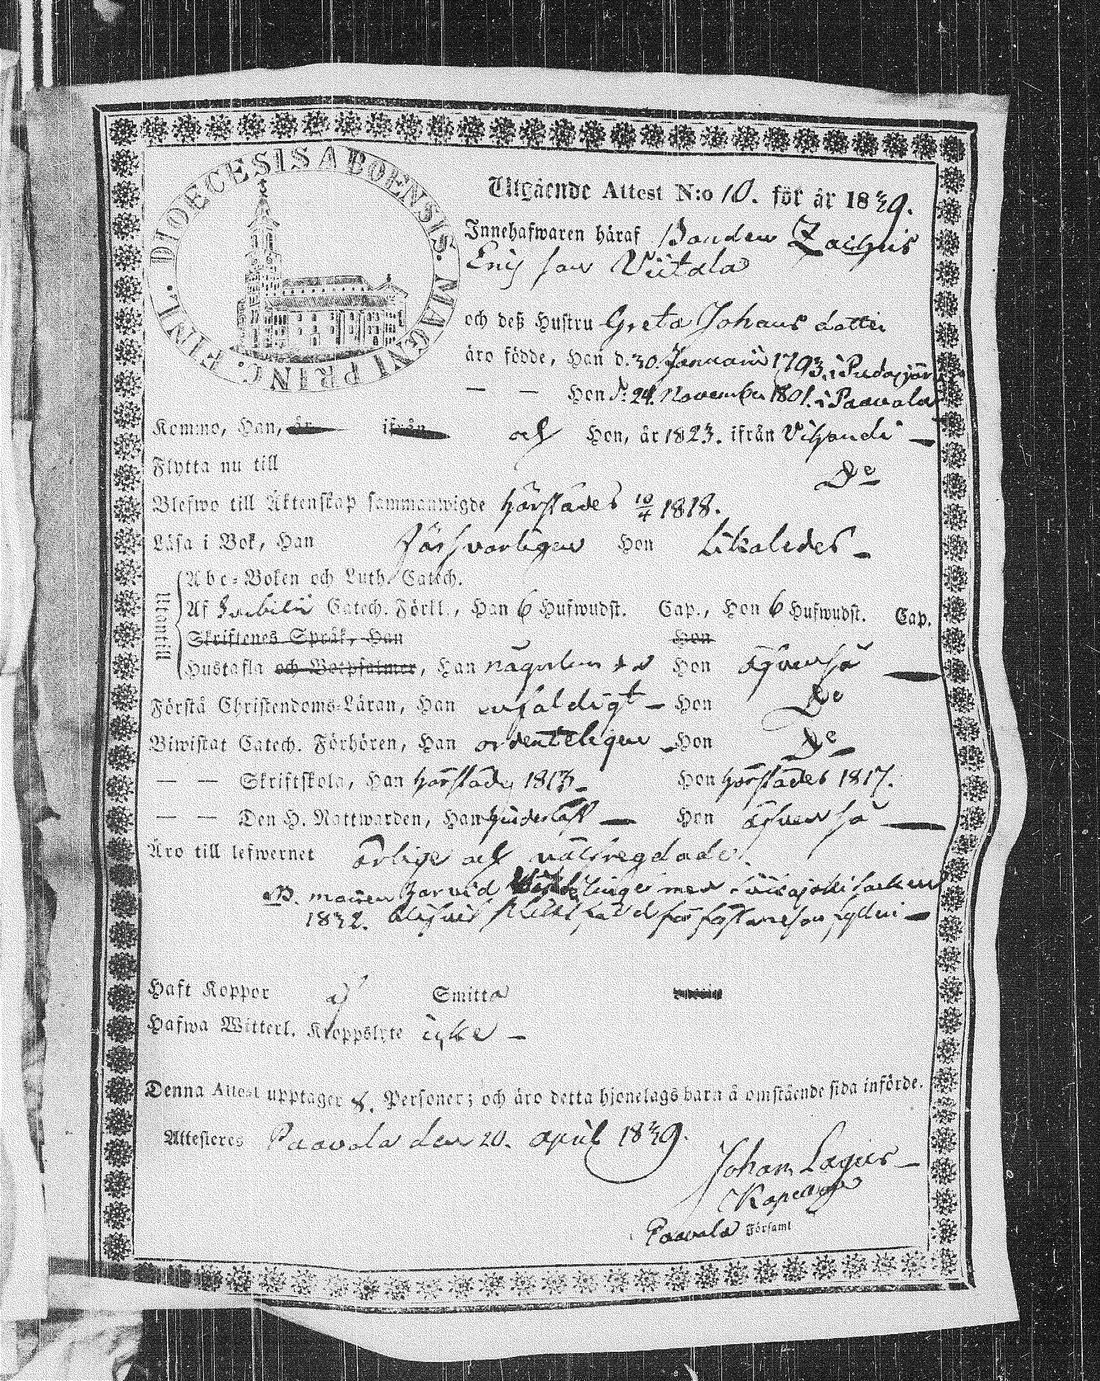 DIOECESIS ABOENSIS. MAGNI PRINC. FINL.
Utgående Attest N:o 10. för år 1839.
Innehafwaren häraf Bonden Zachris
Erics son Viitala
och deß Hustru Greta Johans dotter
äro födde, Han d. 30. Januari 1793. i Pudasjärvi
— — Hon d: 24. November 1801. i Paavola
Komne, Han, år ifrån och Hon, år 1823. ifrån Vihandi —
Flytta nu till De
Blefwo till Äktenskap sammanwigde härstädes 10/4 1818.
Läsa i Bok, Han försvarligen Hon Likaledes —
Utantill
Abc-Boken och Luth. Catech.
Af Catech. Förkl., Han 6 Hufwudst. Cap., Hon 6 Hufwudst. Cap.
Skriftenes Språk, Han Hon
Hustafla och Botpsalmer, Han någorlunda Hon äfvenså —
Förstå Christendoms-Läran, Han enfaldigt — Hon Do
Biwistat Catech. Förhören, Han ordenteligen — Hon Do
— — Skriftskola, Han härstädes Hon härstädes 1817.
— — Den H. Nattwarden, Han Hon äfvenså —
Äro till lefwernet ärlige och
1832.
Haft Koppor af Smitta
Hafwa Witterl. Kroppslyte icke —
Denna Attest upptager 8. Personer; och äro detta hjonelags barn å omstående sida införde.
Attesteres Paavola den 20. April 1839.
Johan Lagus
Kapellan
Paavola Församl